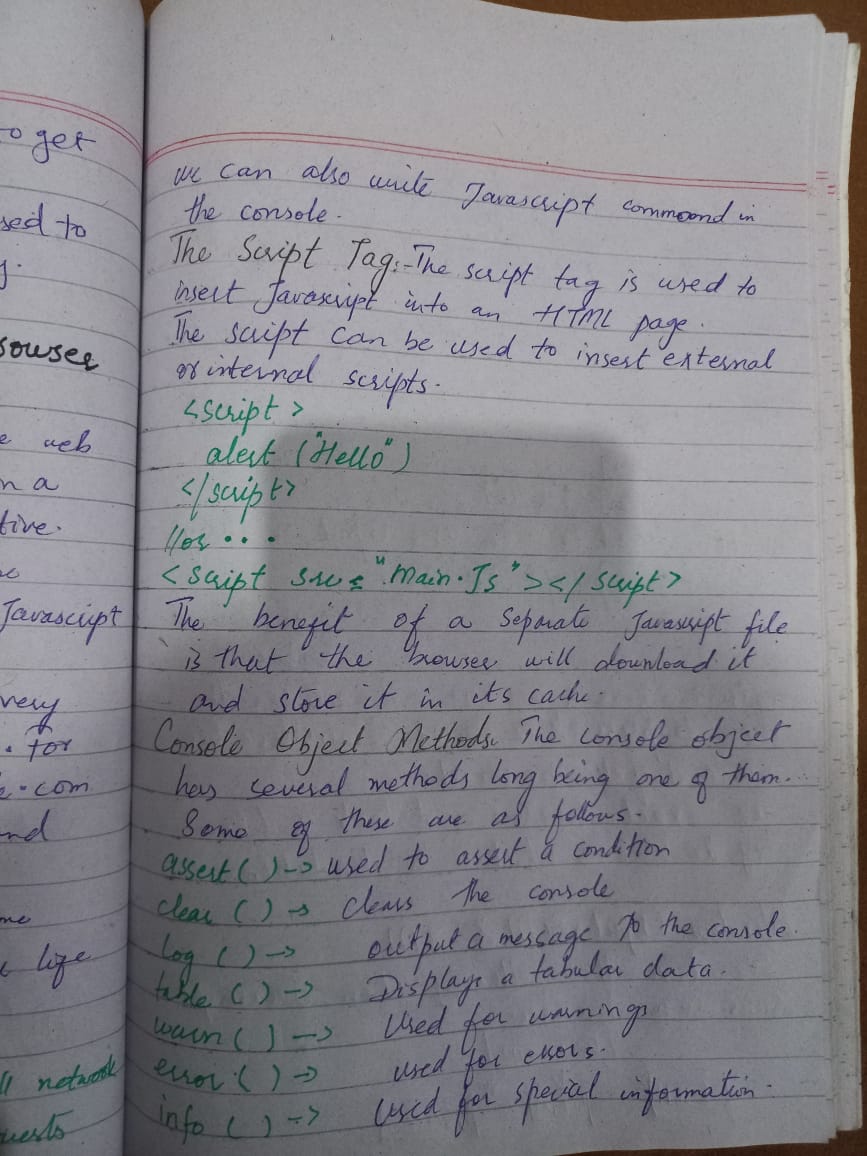 to get
sed to
g.
rowser
e web
n a
tive.
Javascript
very
. for
e.com
end
me
life
ll network
uests
we can also write Javascript commoond in
the console.
The Script Tag:-The script tag is used to
insert Javascript into an HTML page.
The script can be used to insert external
or internal scripts.
<script>
alert ("Hello")
</script>
//or ...
<script src = "main.Js"></script>
The benefit of a Separate Javascript file
is that the browser will download it
and store it in its cache.
Console Object Methods. The console object
has several methods long being one of them.
Some of these are as follows.
assert ( ) -> used to assert a condition
clear ( ) -> clears the console
log ( ) -> output a message to the console.
table ( ) -> Displays a tabular data.
warn ( ) -> Used for warnings
error ( ) -> used for errors.
info ( ) -> used for special information.